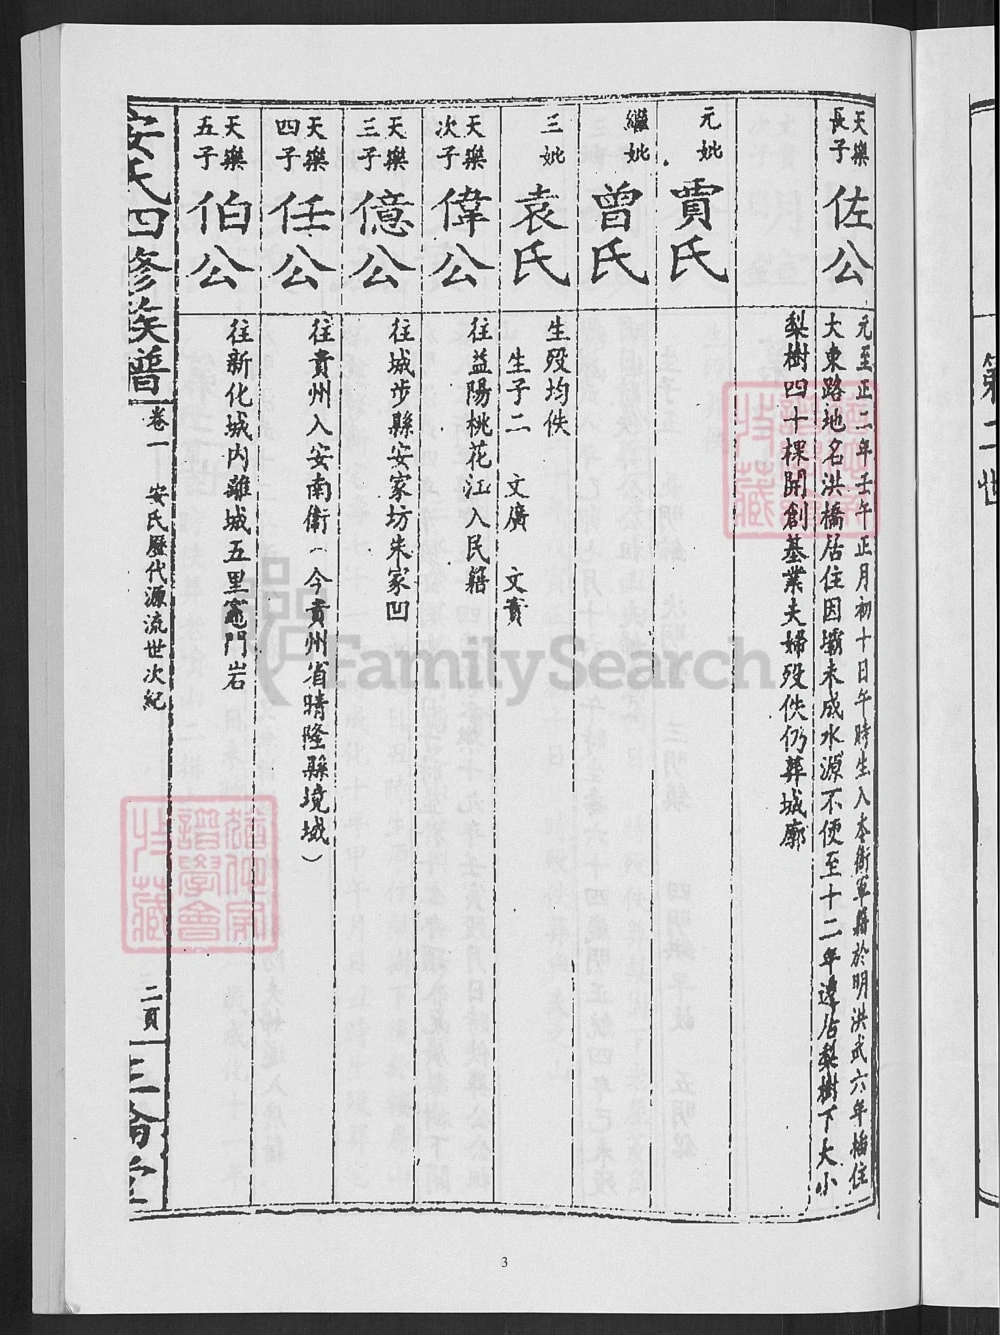 天樂長子
佐公
元至正二年壬午正月初十日午時生入本衛軍籍於明洪武六年插住
大東路地名洪橋居住因壩未成水源不便至十二年遷居梨樹下大小
梨樹四十棵開創基業夫婦歿佚仍葬城廓
元妣
賈氏
繼妣
曾氏
三妣
袁氏
生歿均佚
生子二 文廣 文賓
天樂次子
偉公
往益陽桃花江入民籍
天樂三子
億公
往城步縣安家坊朱家凹
天樂四子
任公
往貴州入安南衛(今貴州省晴隆縣境域)
天樂五子
伯公
往新化城內離城五里竈門岩
安氏四修族譜
卷一 安氏歷代源流世次紀
二頁
三
第二世
FamilySearch
3